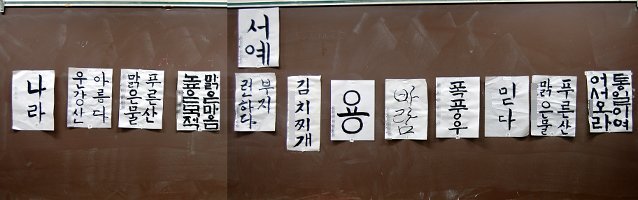 나라
아름다
운강산
푸른산
맑은물
맑은마음
서예
부지
런하다
김치찌개
용
바람
폭풍우
믿다
푸른산
맑은물
통일이여
어서오라